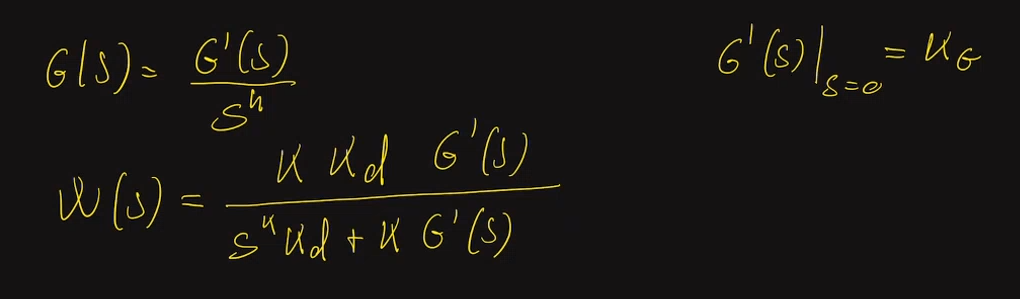 G(s) = G'(s) / s^h
G'(s)|_{s=0} = K_G
W(s) = K Kd G'(s) / (s^h Kd + K G'(s))